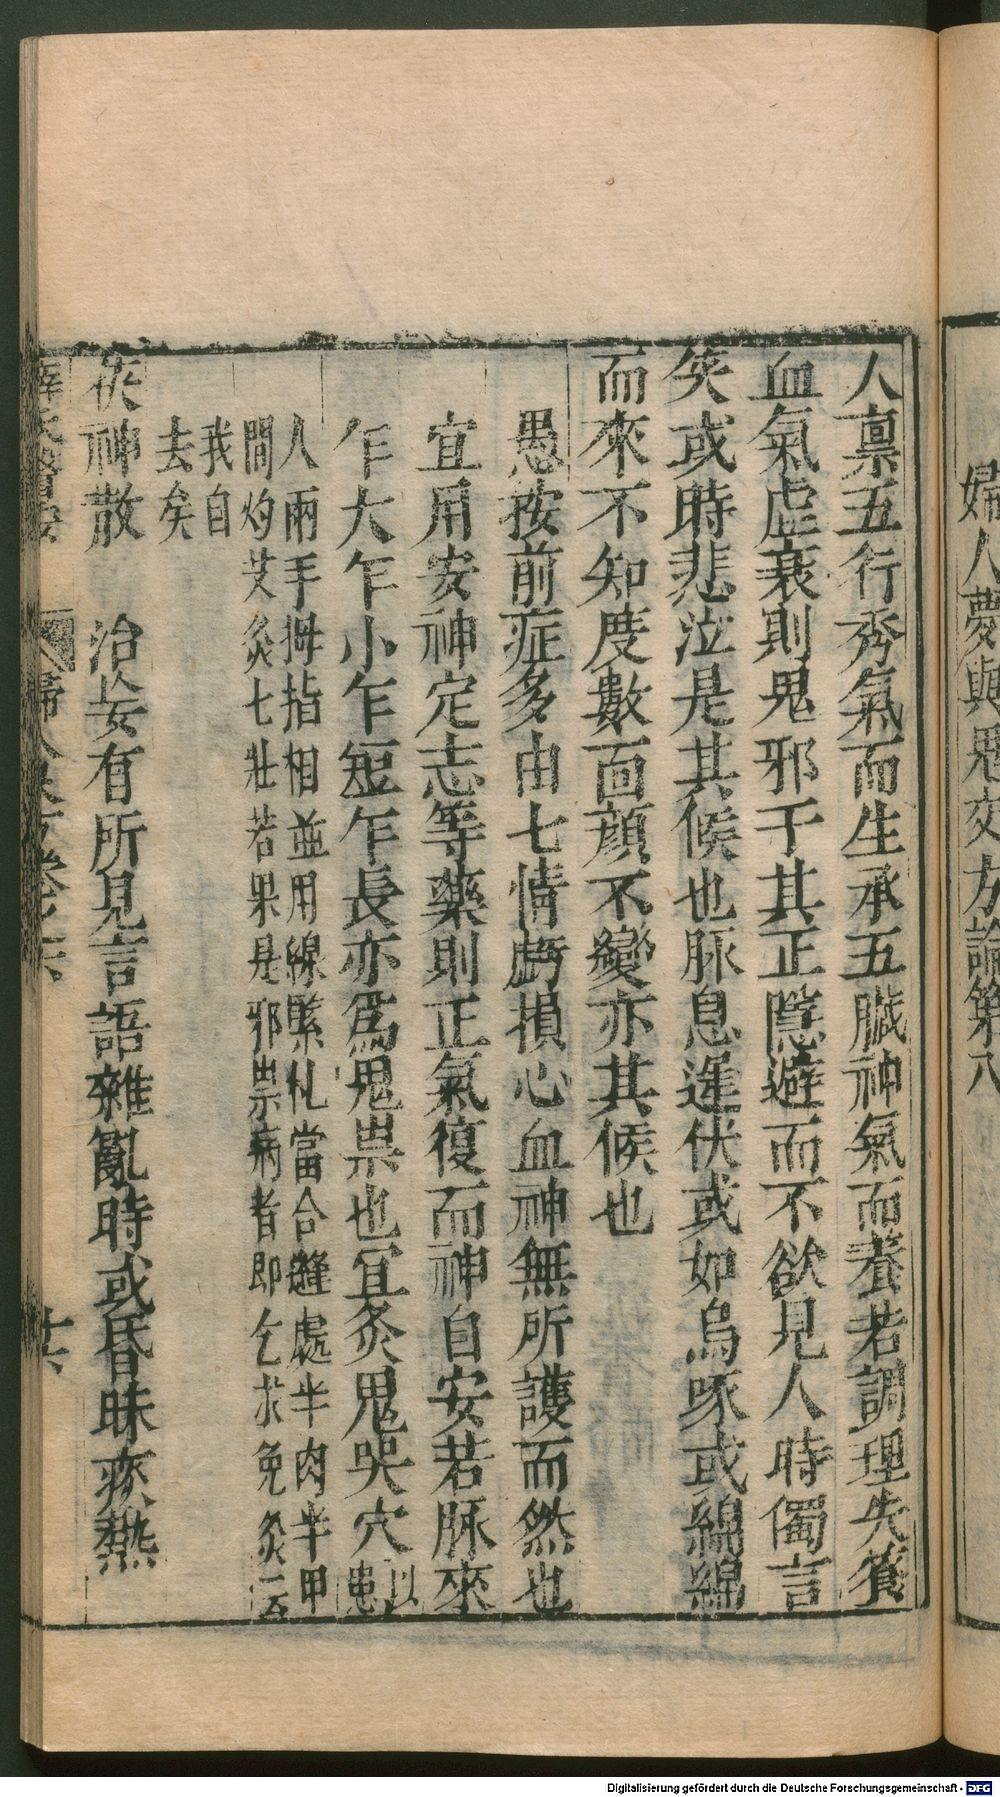 婦人夢與鬼交方論第八
人禀五行秀氣而生承五臟神氣而養若調理失養
血氣虛衰則鬼邪干其正隱避而不欲見人時獨言
笑或時悲泣是其候也脉息遲伏或如烏啄或綿綿
而來不知度數面顏不變亦其候也
愚按前症多由七情虧損心血神無所護而然也
宜用安神定志等藥則正氣復而神自安若脉來
乍大乍小乍短乍長亦爲鬼祟也宜灸鬼哭穴以患
人兩手拇指相並用線緊札當合縫處半肉半甲
間灼艾灸七壯若果是邪祟病者即乞求免灸云
我自
去矣
茯神散 治妄有所見言語雜亂時或昏昧痰熱
薛氏醫按 婦人良方卷之六 廿六
Digitalisierung gefördert durch die Deutsche Forschungsgemeinschaft - DFG